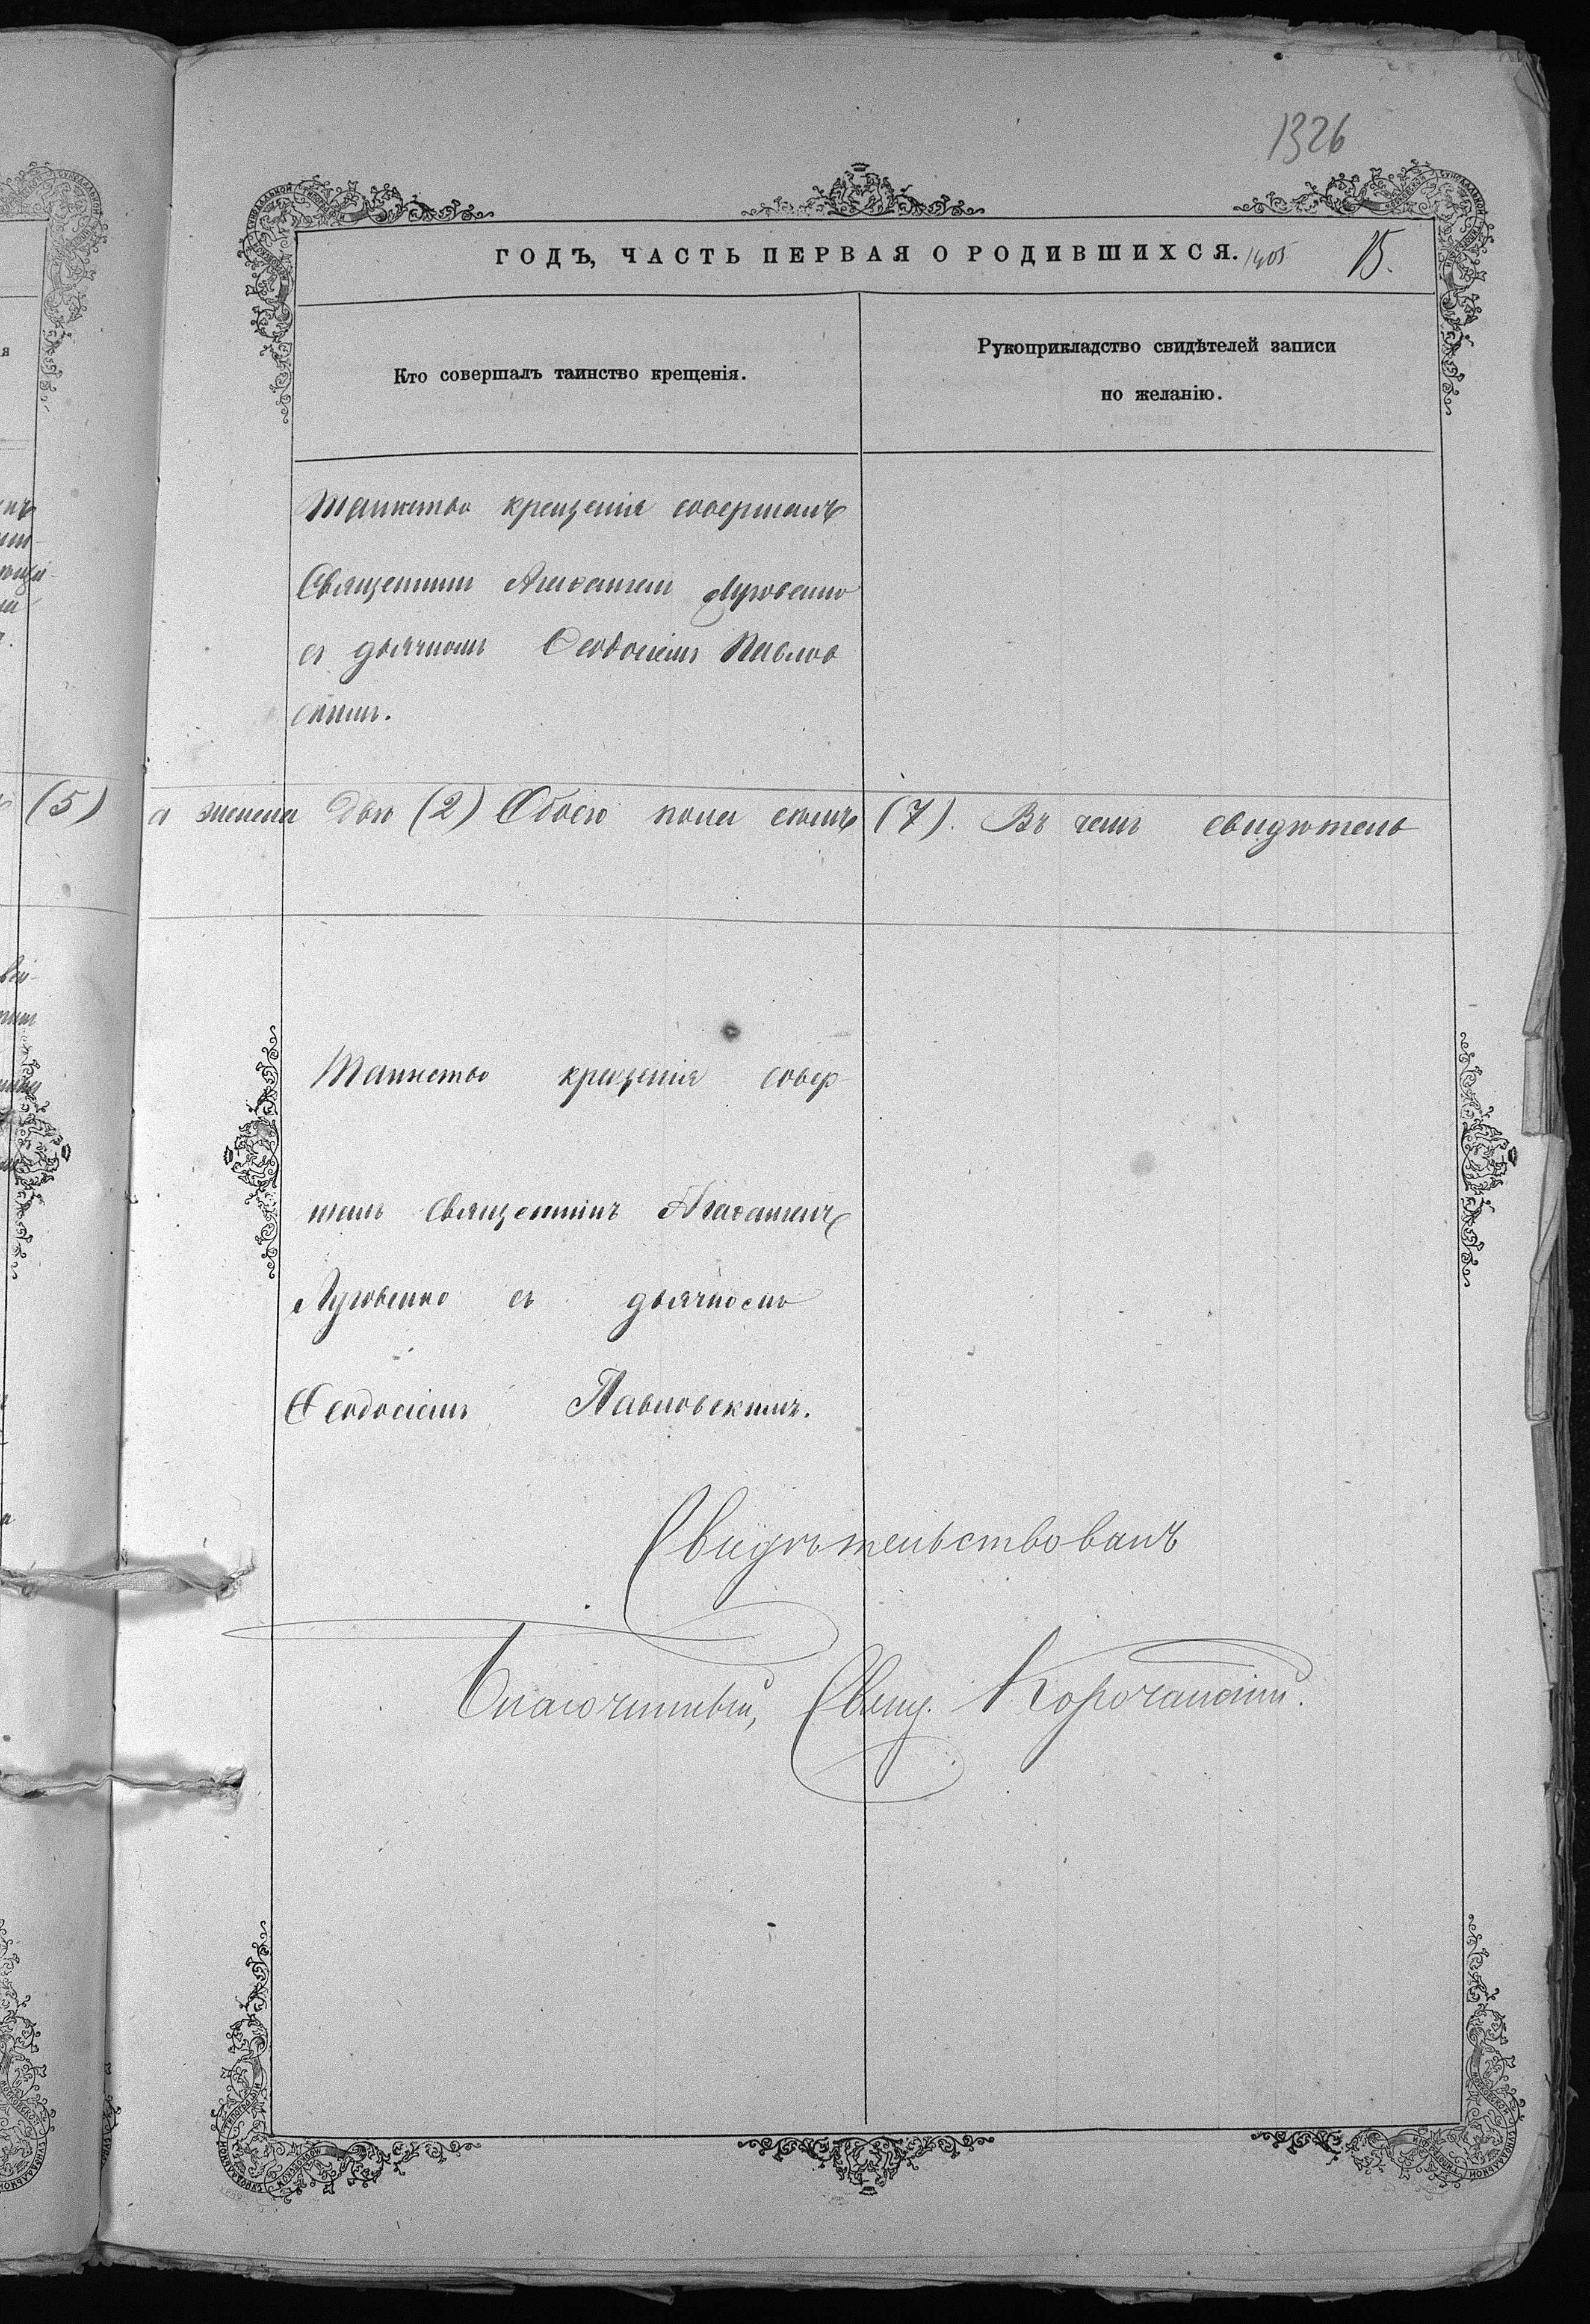 1326
ГОДЪ, ЧАСТЬ ПЕРВАЯ О РОДИВШИХСЯ. 1405 15.
Кто совершалъ таинство крещенія.
Рукоприкладство свидѣтелей записи
по желанію.
Таинство крещенія совершалъ
Священникъ Луговенко
съ дьячкомъ Ѳеодосіемъ Павлов
скимъ.
(5) а женска два (2) Обоего пола семь (7). Въ чемъ свидѣтель
Таинство крещенія совер-
шалъ Священникъ
Луговенко съ дьячкомъ
Ѳеодосіемъ Павловскимъ.
Свидѣтельствовалъ
Благочинный, Свящ. Корочанскій.